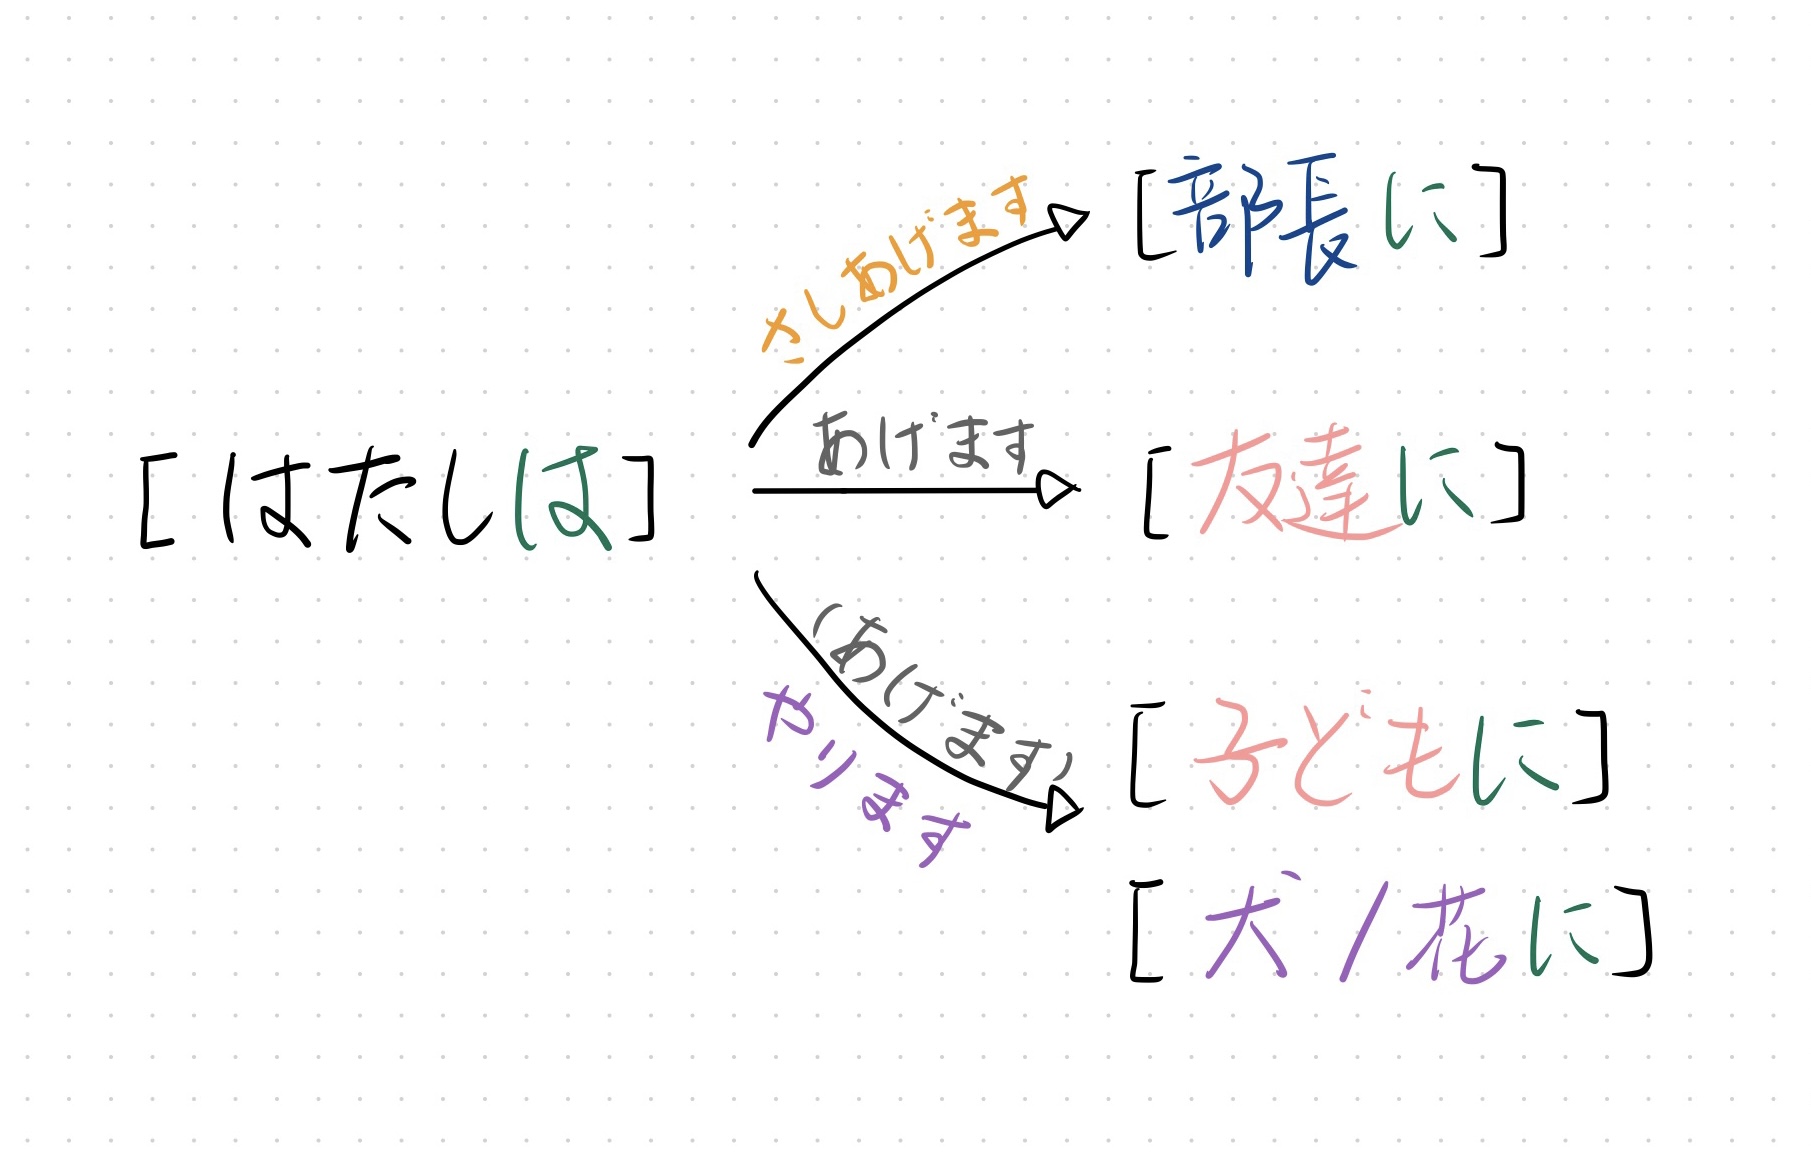 [はたしは]
さしあげます
[部長に]
あげます
[友達に]
(あげます)
やります
[子どもに]
[犬/花に]